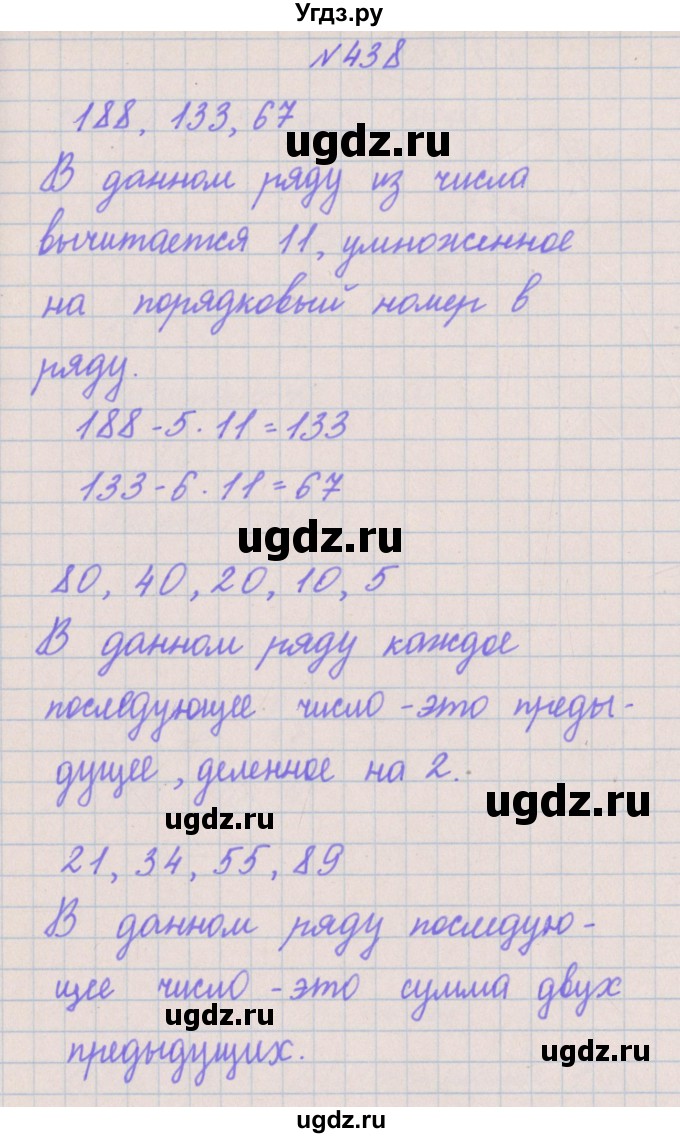 Угдз.ру
№438
188, 133, 67
ugdz.ru
В данном ряду из числа
вычитается 11, умноженное
на порядковый номер в
ряду.
188-5·11=133
133-6·11=67
ugdz.ru
80, 40, 20, 10, 5
В данном ряду каждое
последующее число -это преды-
дущее, деленное на 2.
ugdz.ru
ugdz.ru
21, 34, 55, 89
В данном ряду последую-
щее число -это сумма двух
ugdz.ru
предыдущих.
ugdz.ru
ugdz.ru